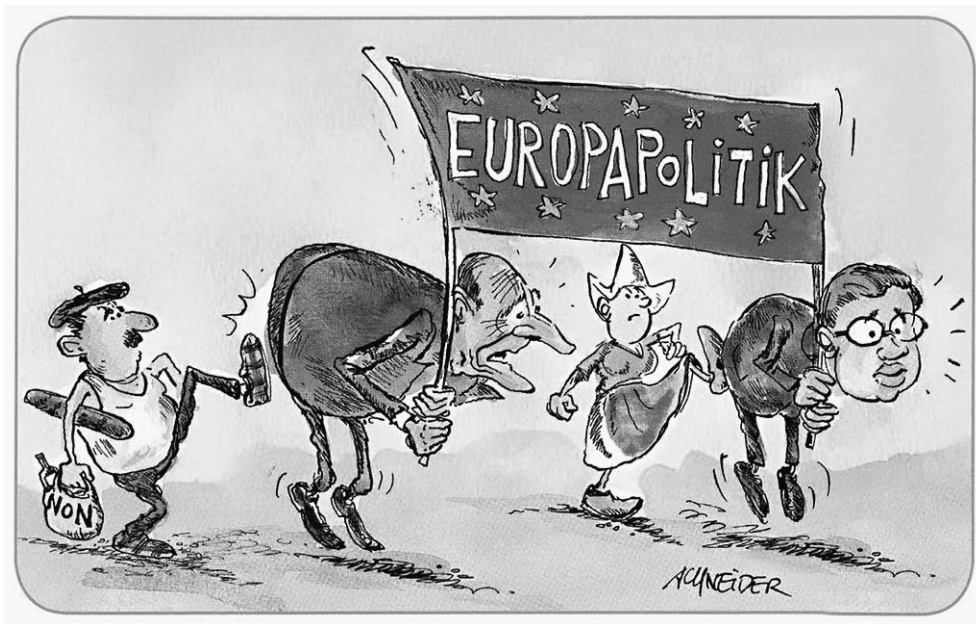 EUROPAPOLITIK
NON
SCHNEIDER